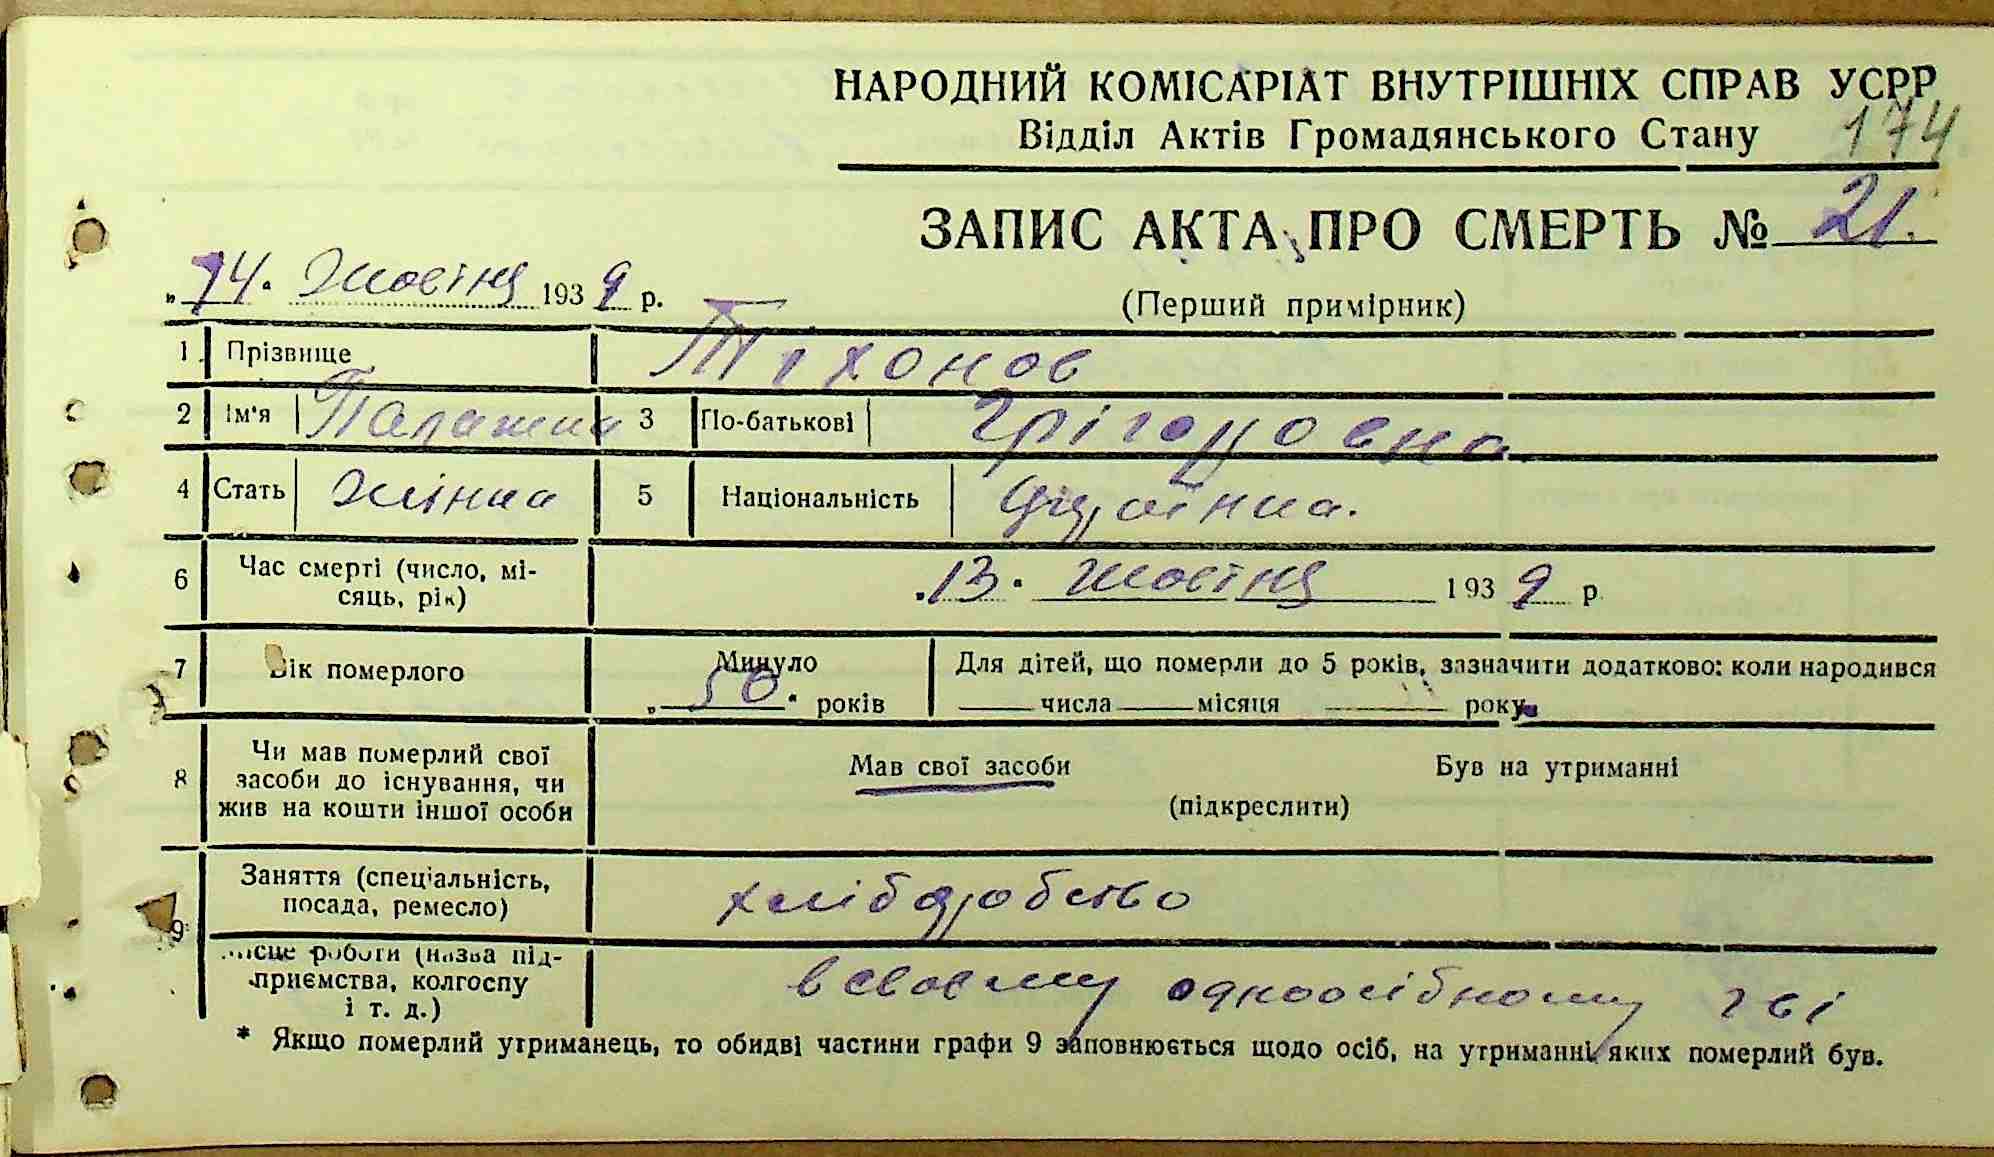 НАРОДНИЙ КОМІСАРІАТ ВНУТРІШНІХ СПРАВ УСРР
Відділ Актів Громадянського Стану
174
ЗАПИС АКТА ПРО СМЕРТЬ № 21.
„14" жовтня 1939 р.
(Перший примірник)
1 Прізвище Тіхонов
2 Ім'я Палажка 3 По-батькові Грігоровна
4 Стать жінка 5 Національність
6 Час смерті (число, місяць, рік) „13" жовтня 1939 р
7 Вік померлого Минуло „50" років Для дітей, що померли до 5 років, зазначити додатково: коли народився
числа місяця року
8 Чи мав померлий свої засоби до існування, чи жив на кошти іншої особи Мав свої засоби Був на утриманні
(підкреслити)
9 Заняття (спеціальність, посада, ремесло) хлібробство
Місце роботи (назва підприємства, колгоспу і т. д.) в своєму одноосібному г-ві
* Якщо померлий утриманець, то обидві частини графи 9 заповнюється щодо осіб, на утриманні яких померлий був.